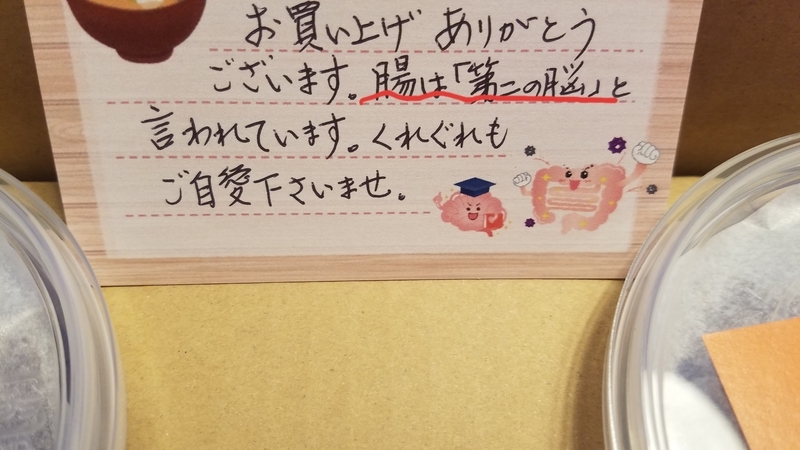 お買い上げ ありがとう
ございます。腸は「第二の脳」と
言われています。くれぐれも
ご自愛下さいませ。